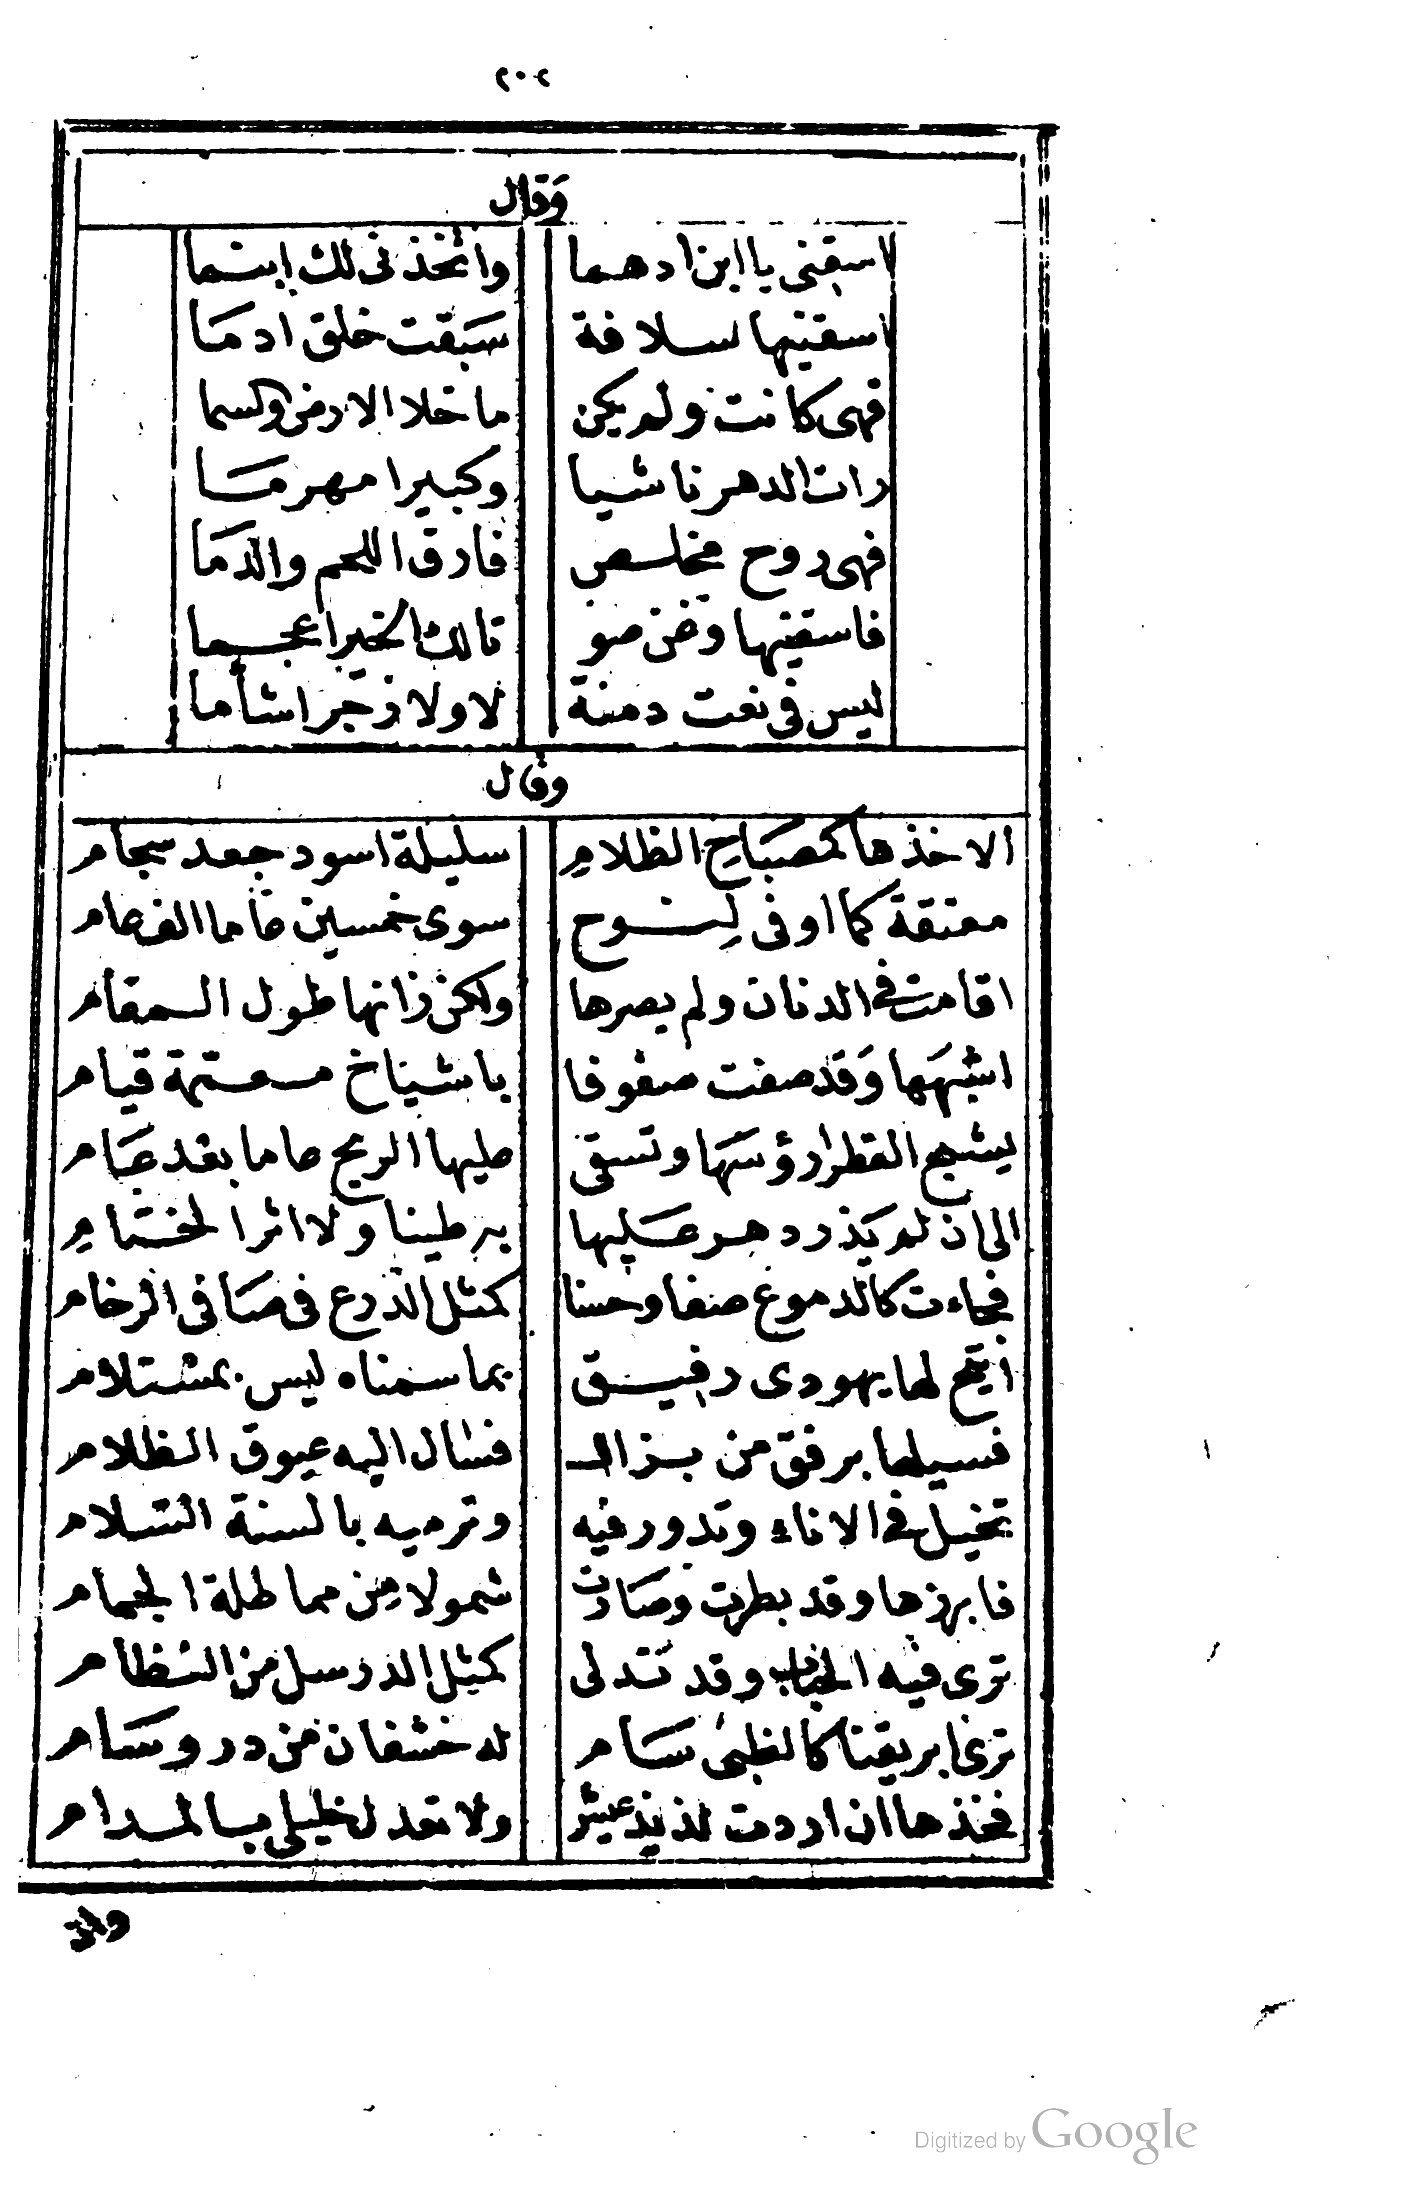 ٢٠٢
وَقال
اسقني يا ابن ادهما واتخذني لك ابنما
اسقنيها سلافة سَبَقت خلق ادمَا
فهي كانت ولم يكن ما خلا الارض والسما
رات الدهر ناشيا وكبيرا مهرمَا
فهي روح مخلص فارق اللحم والدَمَا
فاسقنيها وغن صو تا لك الخير اعجما
ليس في نعت دمنة لا ولا زجر اشأما
وقال
الا خذها كمصباح الظلامِ سليلة اسود جعد سجام
معتقة كما اوفى لِنوح سوى خمسين عاما الف عام
اقامت في الدنان ولم يصرها ولكن زانها طول المقام
اشبهَها وَقد صفت صفوفا باشياخ معتمة قيام
يشج القطر ارؤسَها وتسقى عليها الريح عاما بعد عَام
الى ان لم يَذر دهر عَليها به طينا ولا اثرا لختامِ
فجاءت كالدموع صفا وحسنا كمثل الدرع في صَافي الرخام
اتيح لها يهودى رفيق بما سمناه ليس بمستلام
فسيلها برفق من بزال فسال اليه عيوق الظلام
تخيل في الاناء وتدور فيه وترميه بالسنة السلام
فابرزها وقد بطرت وصَارت شمولا مِن مماطلة الجمام
ترى فيه الحباب وقد تدلى كمثل الدر سل من النظام
ترى ابريقنا كالظبي سَام له خشفان من در وسَام
فخذها ان اردت لذيذ عيش ولا تعدل خليلي بالمدام